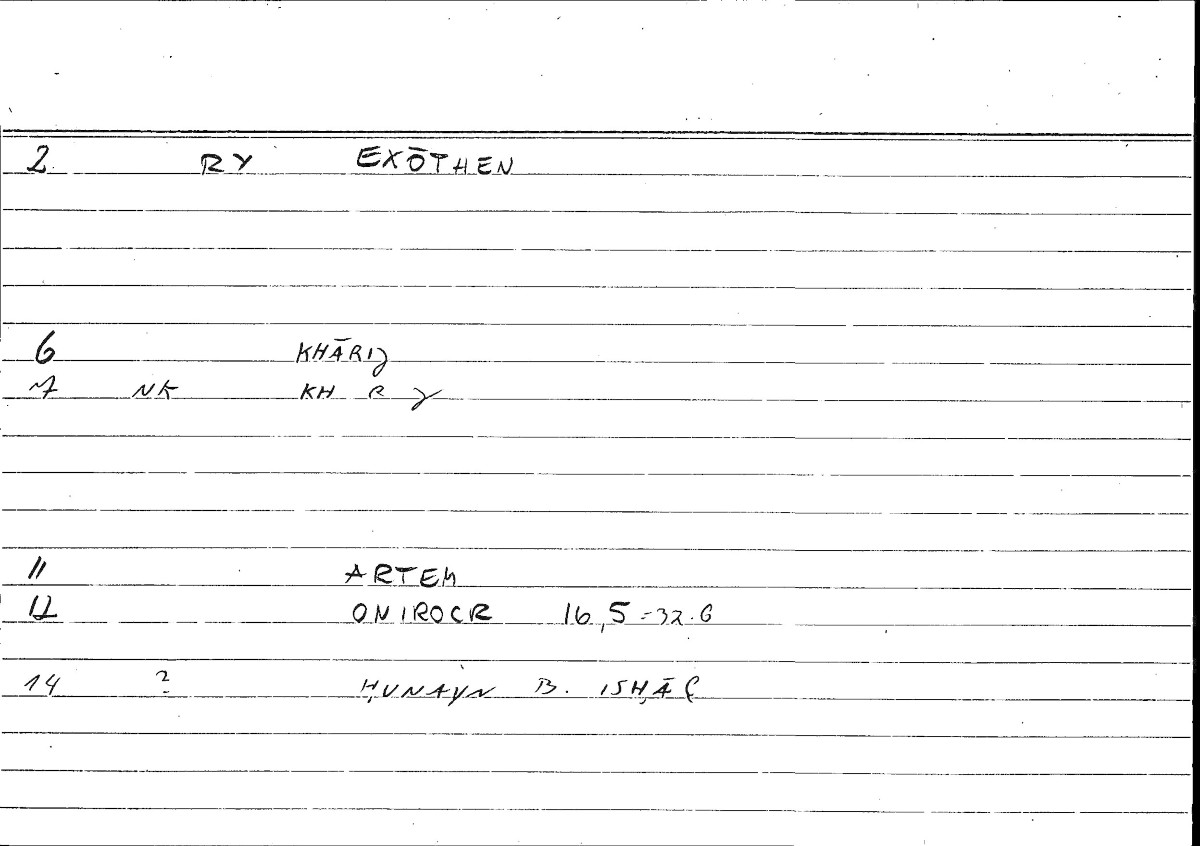 2 RY EXŌTHEN
6 KHĀRIJ
7 NK KH R J
11 ARTEM
12 ONIROCR 16,5-32.6
14 ? ḤUNAYN B. ISḤĀQ